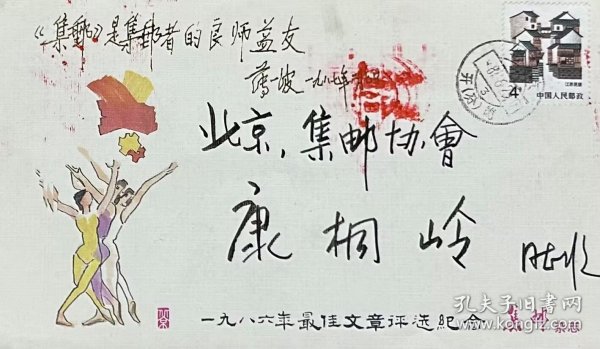 《集邮》是集邮者的良师益友
薄一波 一九八七年
4分
江苏民居
中国人民邮政
北京,集邮协會
康桐岭
一九八六年最佳文章评选纪念
集邮 杂志
孔夫子旧书网
www.kongfz.com